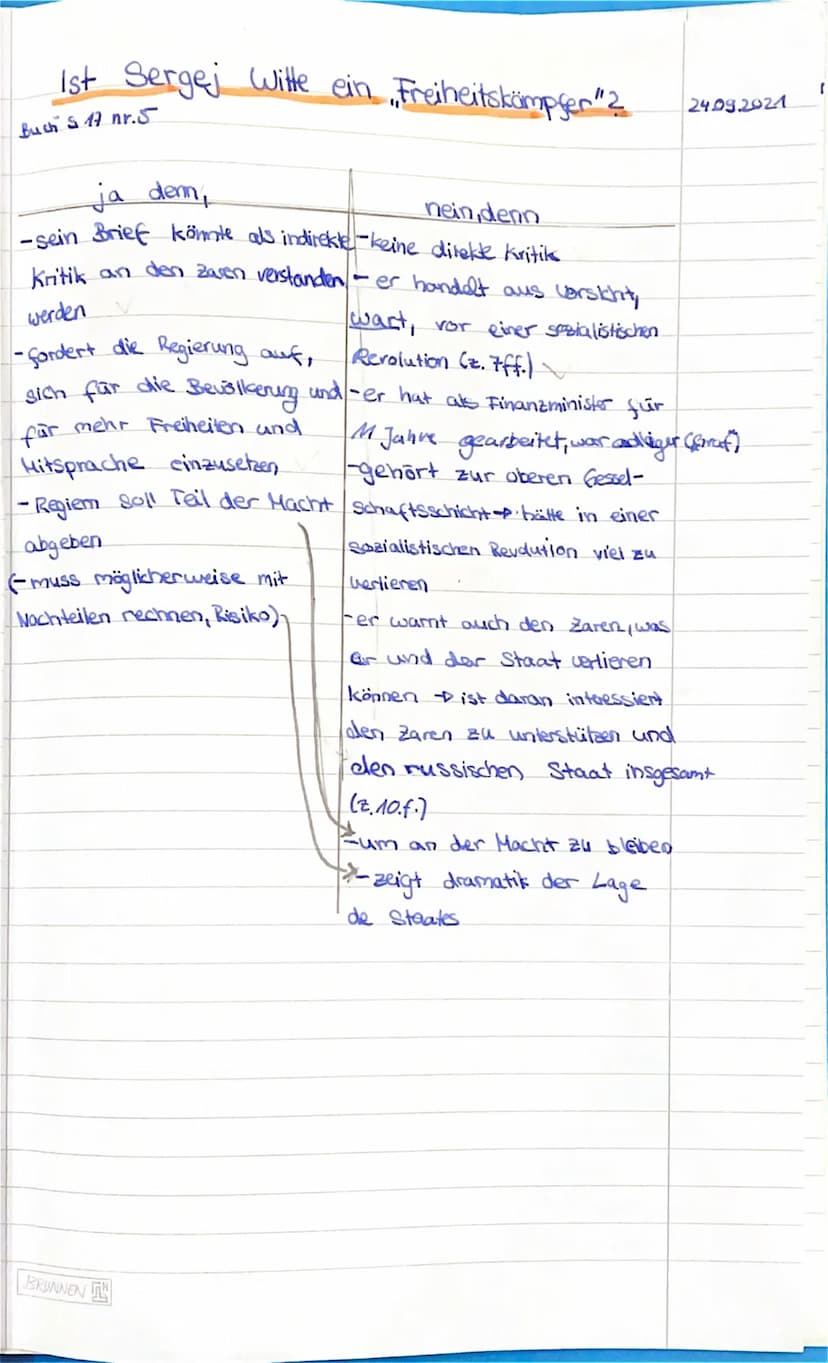 Ist Sergej Witte ein „Freiheitskämpfer"?
24.09.2021
Buch S 17 nr.5
ja denn,
-sein Brief könnte als indirekte
Kritik an den Zaren verstanden
werden
-fordert die Regierung auf,
sich für die Bevölkerung und
für mehr Freiheiten und
Mitsprache einzusetzen
-Regiern soll Teil der Macht
abgeben
(-muss möglicherweise mit
Nachteilen rechnen, Risiko)
nein, denn
-keine direkte Kritik
-er handelt aus Vorsicht,
warnt, vor einer sozialistischen
Revolution (z. 7ff.)
-er hat als Finanzminister für
11 Jahre gearbeitet, war adliger
-gehört zur oberen Gesel-
schaftsschicht→ hätte in einer
sozialistischen Revolution viel zu
verlieren
-er warnt auch den Zaren, was
er und der Staat verlieren
können → ist daran interessiert
den Zaren zu unterstützen und
den russischen Staat insgesamt
(z.10.f.)
-um an der Macht zu bleiben
-zeigt dramatik der Lage
de Staates
BRUNNEN